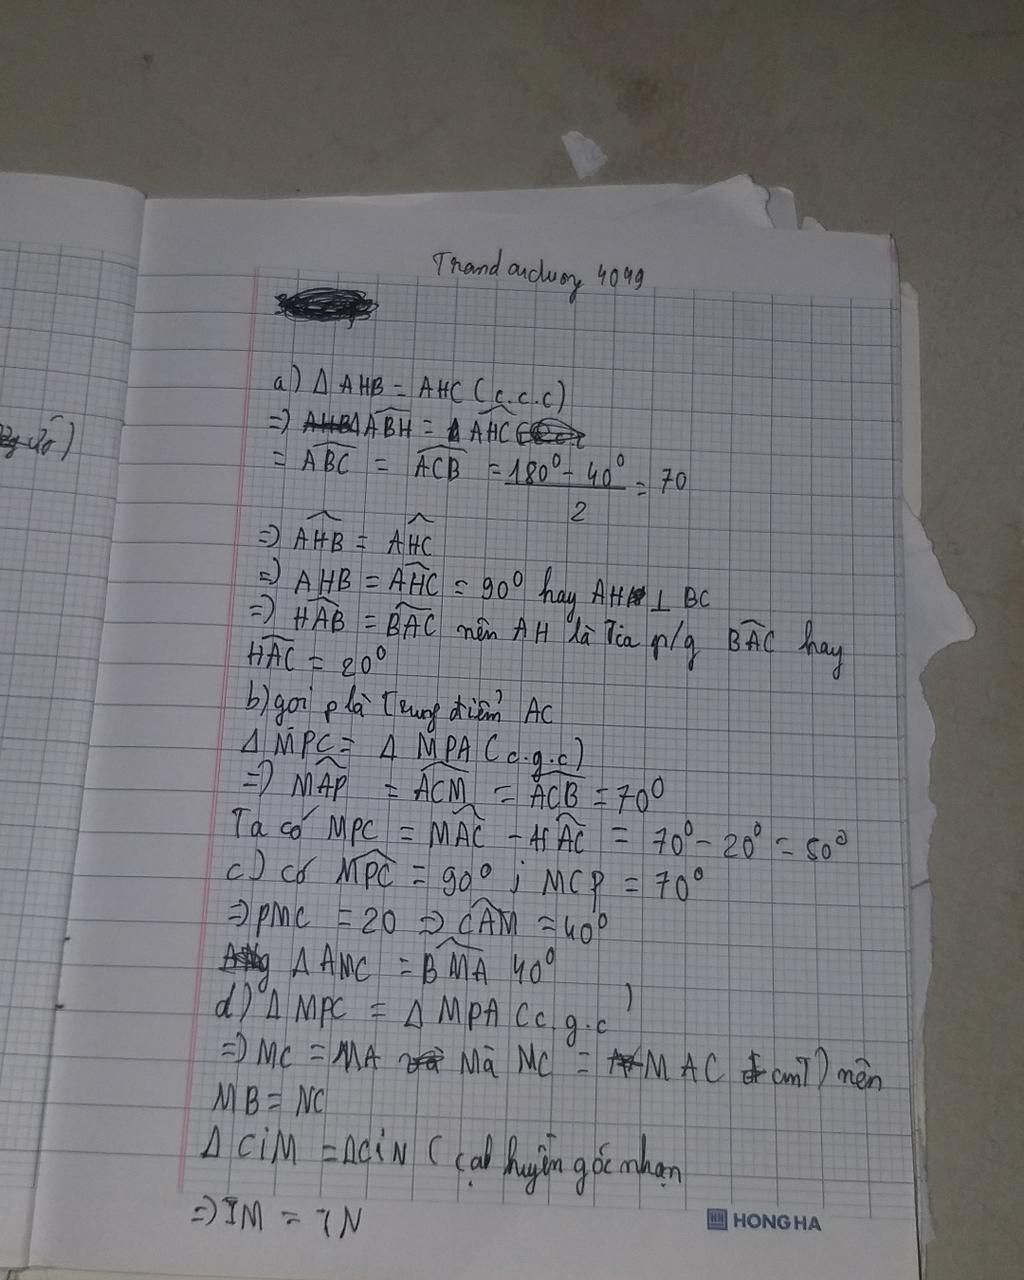 Trandanduong 4049
a) Δ AHB = AHC (c.c.c)
=) ΔABH = Δ AHC
= ABC = ACB = 180° - 40° / 2 = 70
=) AHB = AHC
=) AHB = AHC = 90° hay AH ⊥ BC
=) HAB = BAC nên AH là Tia p/g BAC hay
HAC = 20°
b) gọi p là Trung điểm AC
Δ MPC = Δ MPA (c.g.c)
=) MAP = ACM = ACB = 70°
Ta có MPC = MAC - HAC = 70° - 20° = 50°
c) có MPC = 90° ; MCP = 70°
=) PMC = 20 =) CAM = 40°
Δ AMC = BMA 40°
d) Δ MPC = Δ MPA (c.g.c)
=) MC = MA Mà MC = MAC cmT) nên
MB = NC
Δ CiM = ΔCiN ( cạh huyền góc nhọn
=) IM = iN
HONG HA